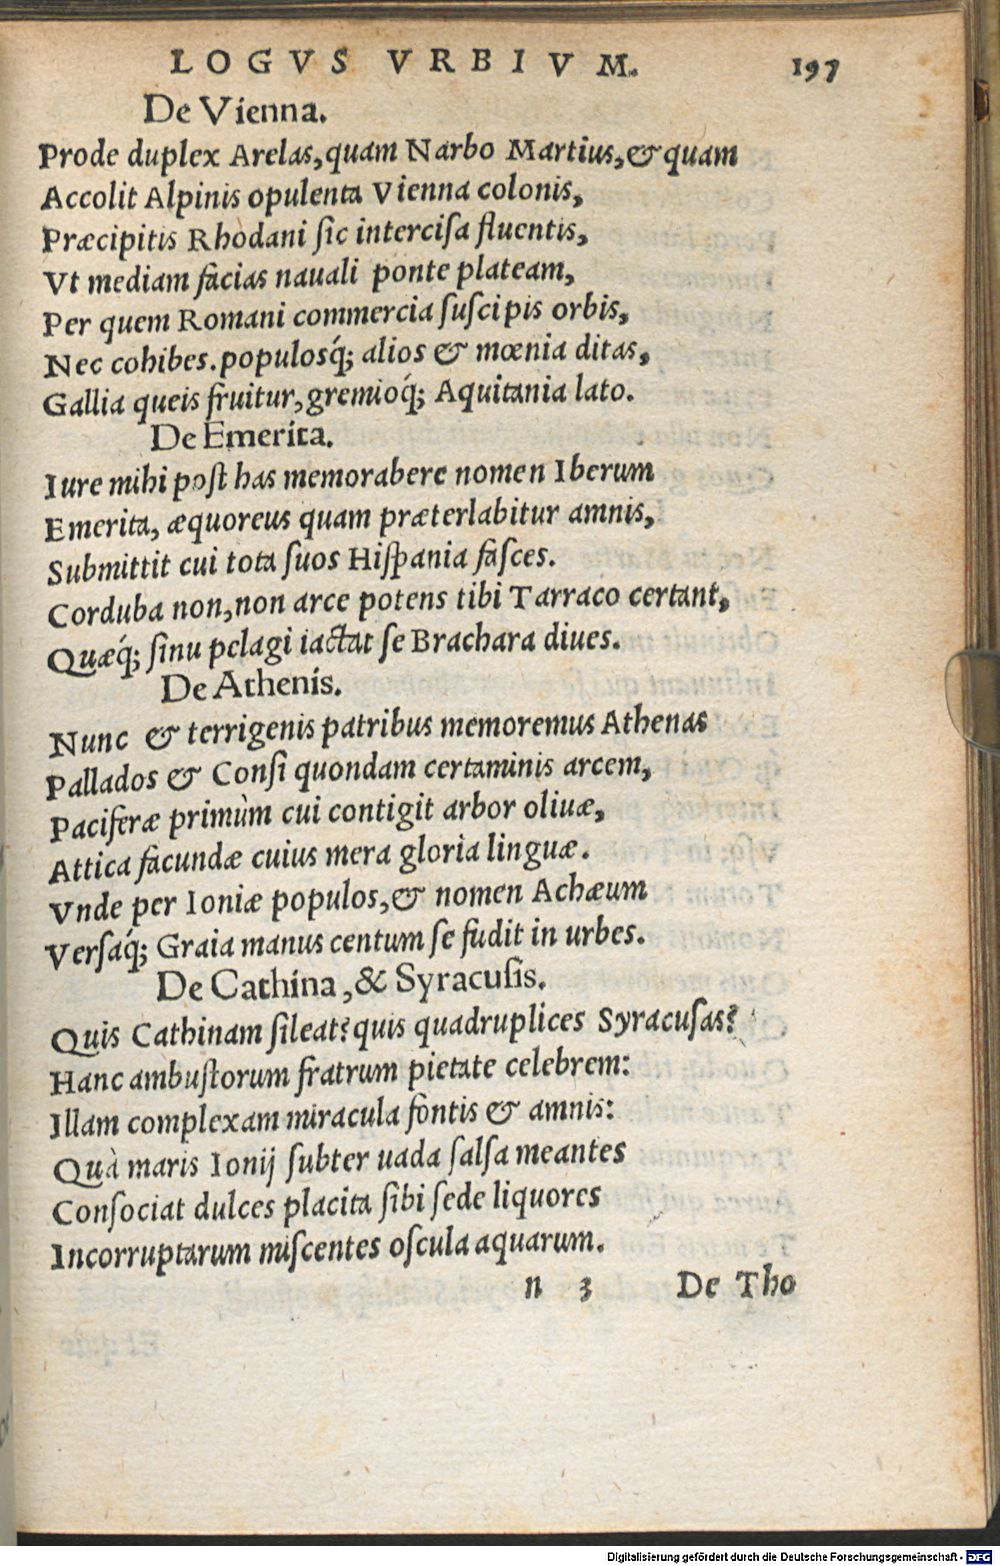 LOGVS VRBIVM. 197
De Vienna.
Prode duplex Arelas, quam Narbo Martius, & quam
Accolit Alpinis opulenta Vienna colonis,
Præcipitis Rhodani ſic interciſa fluentis,
Vt mediam facias nauali ponte plateam,
Per quem Romani commercia ſuſcipis orbis,
Nec cohibes. populosq́; alios & mœnia ditas,
Gallia queis fruitur, gremioq́; Aquitania lato.
De Emerita.
Iure mihi poſt has memorabere nomen Iberum
Emerita, æquoreus quam præterlabitur amnis,
Submittit cui tota ſuos Hiſpania faſces.
Corduba non, non arce potens tibi Tarraco certant,
Quæq́; ſinu pelagi iactat ſe Brachara diues.
De Athenis.
Nunc & terrigenis patribus memoremus Athenas
Pallados & Conſi quondam certaminis arcem,
Paciferæ primùm cui contigit arbor oliuæ,
Attica facundæ cuius mera gloria linguæ.
Vnde per Ioniæ populos, & nomen Achæum
Verſaq́; Graia manus centum ſe fudit in urbes.
De Cathina, & Syracuſis.
Quis Cathinam ſileat? quis quadruplices Syracuſas?
Hanc ambuſtorum fratrum pietate celebrem:
Illam complexam miracula fontis & amnis:
Quà maris Ionij ſubter uada ſalſa meantes
Conſociat dulces placita ſibi ſede liquores
Incorruptarum miſcentes oſcula aquarum.
n 3 De Tho
Digitalisierung gefördert durch die Deutsche Forschungsgemeinschaft - DFG